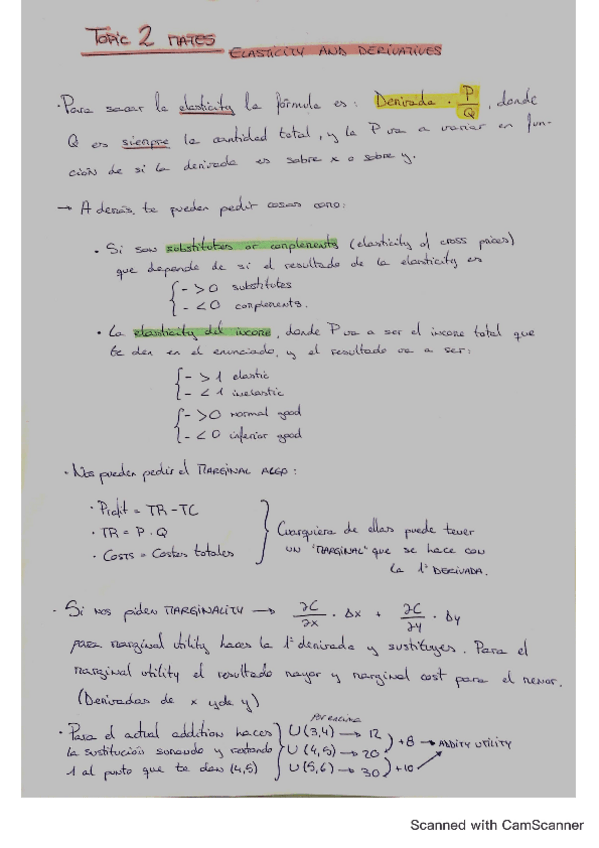 TOPIC 2 MATES
ELASTICITY AND DERIVATIVES
· Para sacar la elasticity la fórmula es: Derivada · P/Q, donde
Q es siempre la cantidad total, y la P va a variar en fun-
ción de si la derivada es sobre x o sobre y.
→ Además, te pueden pedir cosas como:
• Si son substitutes or complements (elasticity of cross prices)
que depende de si el resultado de la elasticity es
{ - >0 substitutes
- <0 complements.
• La elasticity del income, donde P va a ser el income total que
te den en el enunciado, y el resultado va a ser:
{ - > 1 elastic
- < 1 inelastic
{ - >0 normal good
- <0 inferior good
• Nos pueden pedir el MARGINAL ALGO:
• Profit = TR - TC
• TR = P · Q
• COSTS = Costes totales
} Cualquiera de ellas puede tener
un "MARGINAL" que se hace con
la 1ª DERIVADA.
• Si nos piden MARGINALITY → ∂C/∂x · Δx + ∂C/∂y · Δy
para marginal utility haces la 1ª derivada y sustituyes. Para el
marginal utility el resultado mayor y marginal cost para el menor.
(Derivadas de x y de y)
• Para el actual addition haces
la sustitución sumando y restando
1 al punto que te dan (4,5)
Por encima
U(3,4) → 12
U(4,5) → 20
U(5,6) → 30
+8 → ADDITY UTILITY
+10
Scanned with CamScanner